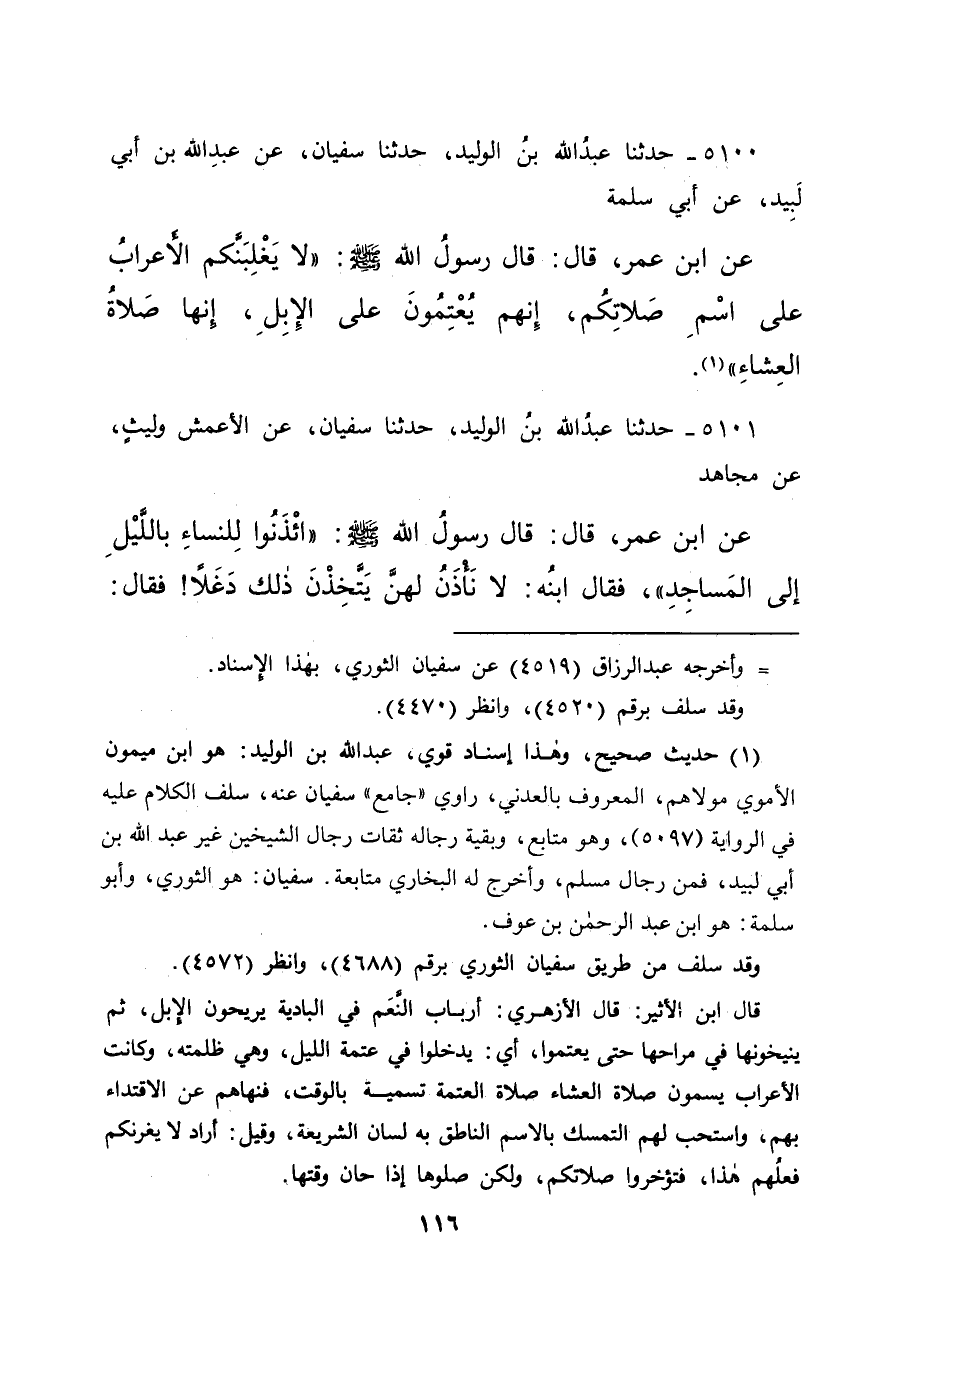 ٥١٠٠ ـ حدثنا عبدُالله بنُ الوليد، حدثنا سفيان، عن عبدِالله بن أبي
لَبِيد، عن أبي سلمة
عن ابن عمر، قال: قال رسولُ الله ﷺ: «لا يَغْلِبَنَّكم الأَعرابُ
على اسْمِ صَلاتِكُم، إنهم يُعْتِمُونَ على الإِبِلِ، إنها صَلاةُ
العِشاءِ»(١).
٥١٠١ ـ حدثنا عبدُالله بنُ الوليد، حدثنا سفيان، عن الأعمش وليثٍ،
عن مجاهد
عن ابن عمر، قال: قال رسولُ الله ﷺ: «ائْذَنُوا لِلنساءِ باللَّيْلِ
إلى المَساجِدِ»، فقال ابنُه: لا نَأْذَنُ لهنَّ يَتَّخِذْنَ ذٰلك دَغَلًا! فقال:
= وأخرجه عبدالرزاق (٤٥١٩) عن سفيان الثوري، بهٰذا الإِسناد.
وقد سلف برقم (٤٥٢٠)، وانظر (٤٤٧٠).
(١) حديث صحيح، وهٰذا إسناد قوي، عبدالله بن الوليد: هو ابن ميمون
الأموي مولاهم، المعروف بالعدني، راوي «جامع» سفيان عنه، سلف الكلام عليه
في الرواية (٥٠٩٧)، وهو متابع، وبقية رجاله ثقات رجال الشيخين غير عبد الله بن
أبي لبيد، فمن رجال مسلم، وأخرج له البخاري متابعة. سفيان: هو الثوري، وأبو
سلمة: هو ابن عبد الرحمٰن بن عوف.
وقد سلف من طريق سفيان الثوري برقم (٤٦٨٨)، وانظر (٤٥٧٢).
قال ابن الأثير: قال الأزهري: أرباب النَّعَم في البادية يريحون الإبل، ثم
ينيخونها في مراحها حتى يعتموا، أي: يدخلوا في عتمة الليل، وهي ظلمته، وكانت
الأعراب يسمون صلاة العشاء صلاة العتمة تسمية بالوقت، فنهاهم عن الاقتداء
بهم، واستحب لهم التمسك بالاسم الناطق به لسان الشريعة، وقيل: أراد لا يغرنكم
فعلُهم هٰذا، فتؤخروا صلاتكم، ولكن صلوها إذا حان وقتها.
١١٦